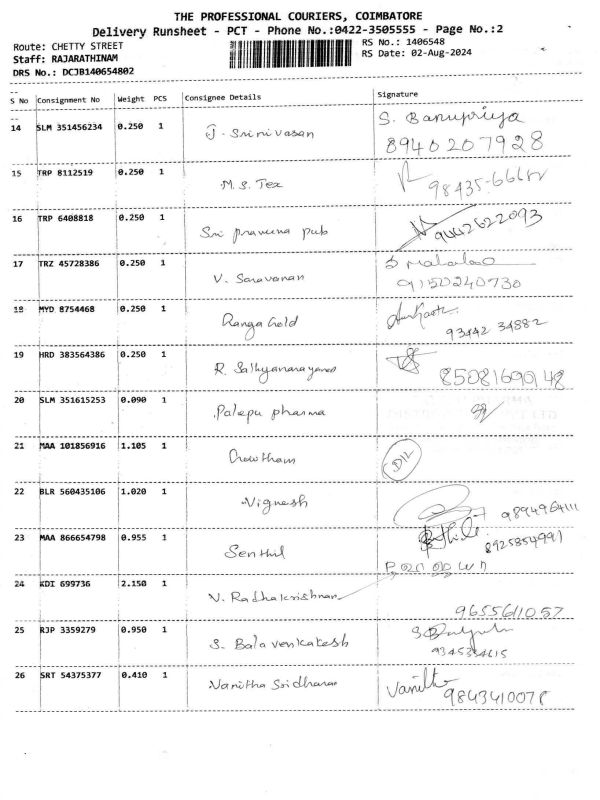 THE PROFESSIONAL COURIERS, COIMBATORE
Delivery Runsheet - PCT - Phone No.:0422-3505555 - Page No.:2
Route: CHETTY STREET
RS No.: 1406548
Staff: RAJARATHINAM
RS Date: 02-Aug-2024
DRS No.: DCJB140654802
S No Consignment No Weight PCS Consignee Details Signature
14 SLM 351456234 0.250 1 J. Srinivasan S. Banupriya
8940207928
15 TRP 8112519 0.250 1 M. S. Tex
16 TRP 6408818 0.250 1 Sri praveena pub
17 TRZ 45728386 0.250 1 V. Saravanan
9150240730
18 MYD 8754468 0.250 1 Ranga Gold
93442 34882
19 HRD 383564386 0.250 1 R. Sathyanarayanan
8508169048
20 SLM 351615253 0.090 1 Palepu pharma
21 MAA 101856916 1.105 1 Gowtham
22 BLR 560435106 1.020 1 Vignesh
23 MAA 866654798 0.955 1 Senthil
8925854991
24 KDI 699736 2.150 1 V. Radhakrishnan
9655611057
25 RJP 3359279 0.950 1 S. Balavenkatesh
9345354615
26 SRT 54375377 0.410 1 Vanitha Sridharan Vanitha
9843410078